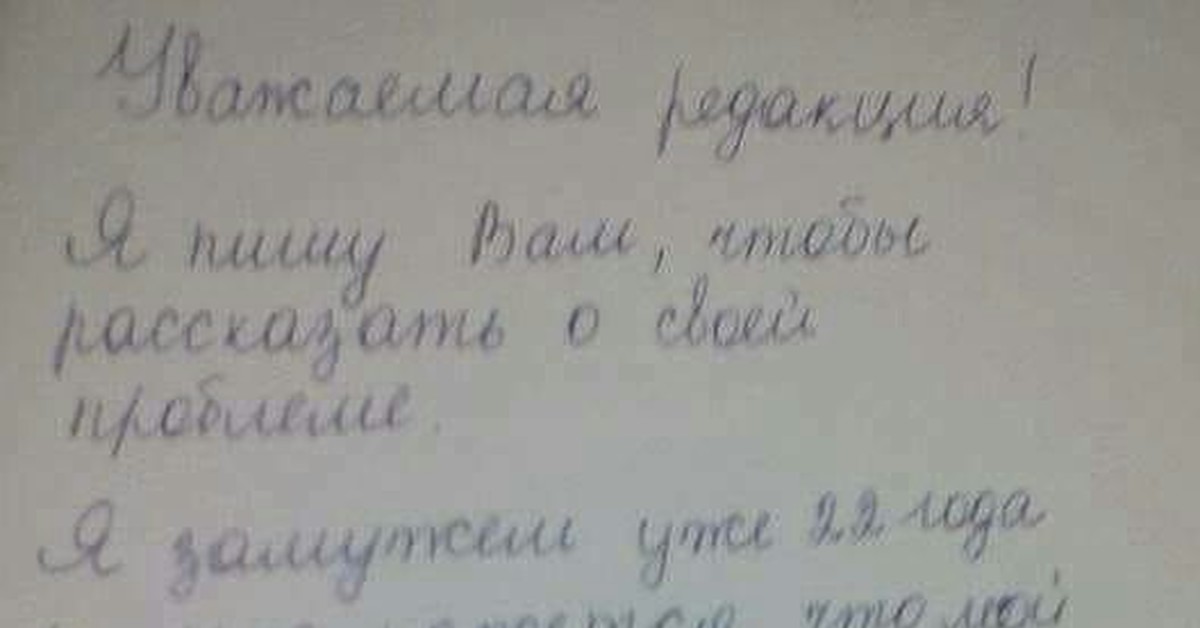 Уважаемая редакция!
Я пишу Вам, чтобы
рассказать о своей
проблеме.
Я замужем уже 22 года
что мой